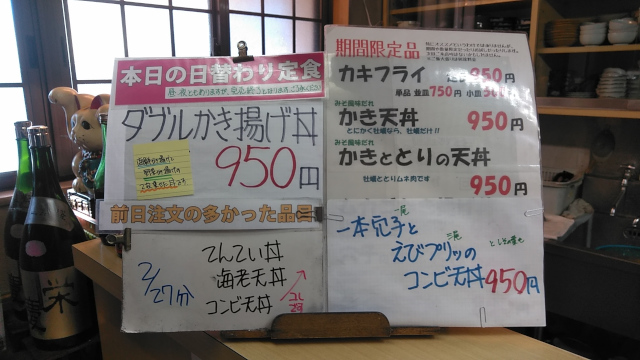 本日の日替わり定食
ダブルかき揚げ丼
950円
前日注文の多かった品目
2/27分
てんてい丼
海老天丼
コンビ天丼
期間限定品
カキフライ 定食950円
単品 並皿750円 小皿
みそ風味だれ
かき天丼 950円
とにかく牡蠣なら、牡蠣だけ!!
みそ風味だれ
かきととりの天丼
牡蠣ととりムネ肉です
950円
一本穴子と
えびプリッの
コンビ天丼950円
栄